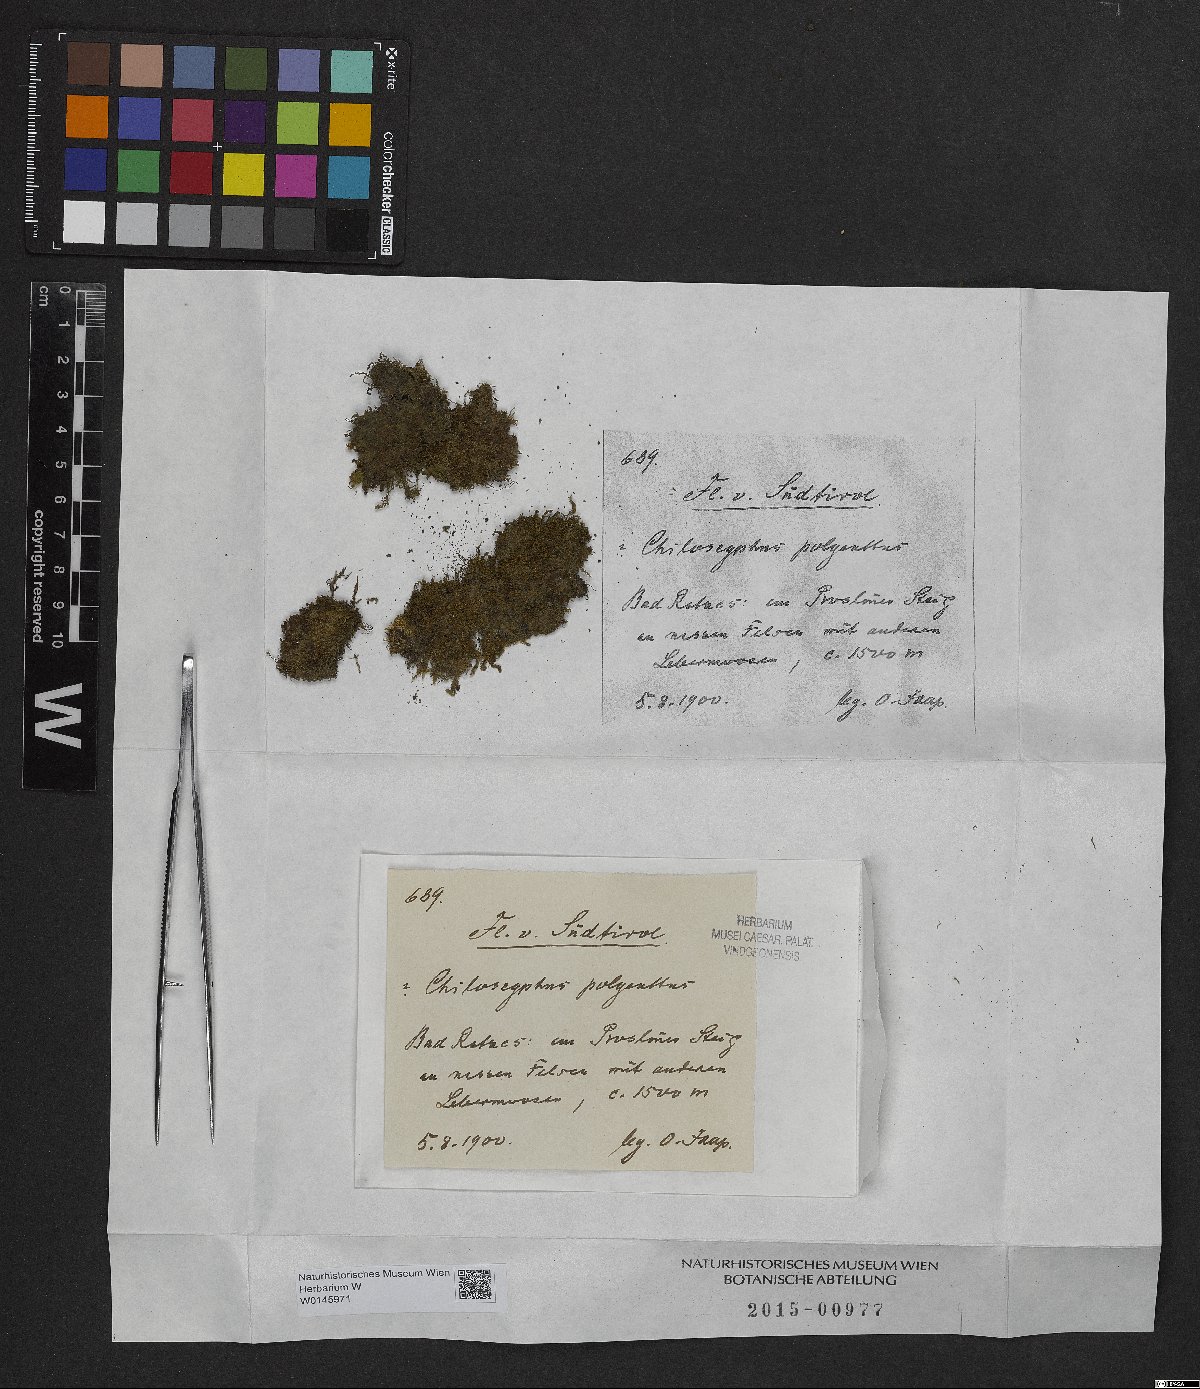 x-rite
colorchecker CLASSIC
cm
0 1 2 3 4 5 6 7 8 9 10
copyright reserved
W
689.
Fl. v. Südtirol
Chiloscyphus polyanthus
Bad Ratzes: am Proslines Steig
an nassen Felsen mit anderen
Lebermoosen, c. 1500 m
5.8.1900. leg. O. Jaap.
689.
Fl. v. Südtirol
HERBARIUM
MUSEI CAESAR. PALAT.
VINDOBONENSIS
Chiloscyphus polyanthus
Bad Ratzes: am Proslines Steig
an nassen Felsen mit anderen
Lebermoosen, c. 1500 m
5.8.1900. leg. O. Jaap.
Naturhistorisches Museum Wien
Herbarium W
W0145971
NATURHISTORISCHES MUSEUM WIEN
BOTANISCHE ABTEILUNG
2015-00977